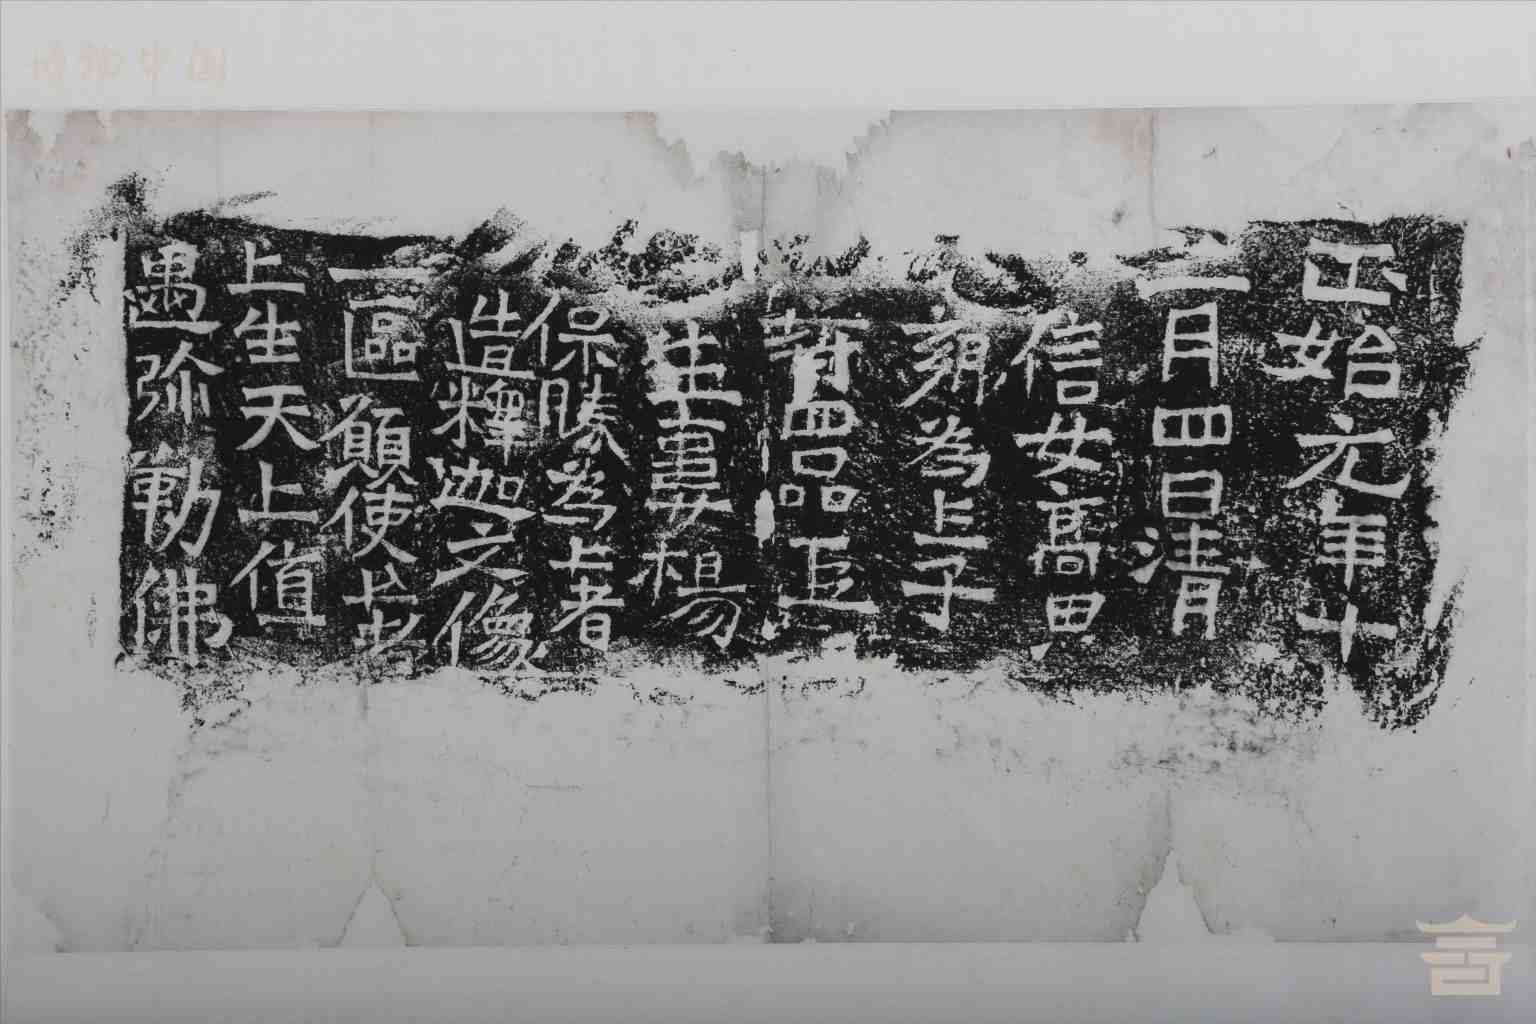 正始元年十
二月四日清
信女高思
鄉為亡子
四品
生妻楊
保勝為亡者
造釋迦文像
一區願使亡者
上生天上值
遇弥勒佛